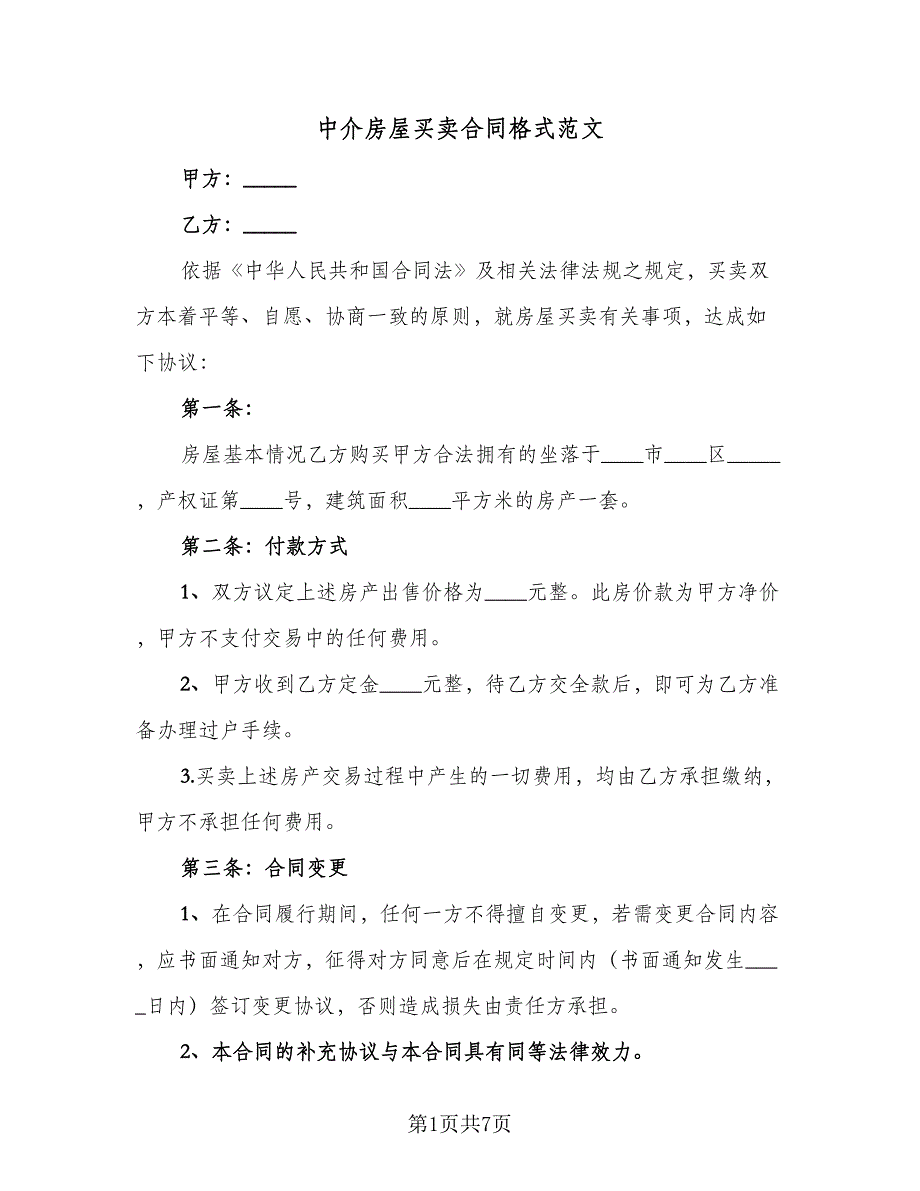 中介房屋买卖合同格式范文
甲方：_____
乙方：_____
依据《中华人民共和国合同法》及相关法律法规之规定，买卖双
方本着平等、自愿、协商一致的原则，就房屋买卖有关事项，达成如
下协议：
第一条：
房屋基本情况乙方购买甲方合法拥有的坐落于____市____区_____
，产权证第____号，建筑面积____平方米的房产一套。
第二条：付款方式
1、双方议定上述房产出售价格为____元整。此房价款为甲方净价
，甲方不支付交易中的任何费用。
2、甲方收到乙方定金____元整，待乙方交全款后，即可为乙方准
备办理过户手续。
3.买卖上述房产交易过程中产生的一切费用，均由乙方承担缴纳，
甲方不承担任何费用。
第三条：合同变更
1、在合同履行期间，任何一方不得擅自变更，若需变更合同内容
，应书面通知对方，征得对方同意后在规定时间内（书面通知发生___
_日内）签订变更协议，否则造成损失由责任方承担。
2、本合同的补充协议与本合同具有同等法律效力。
第1页共7页